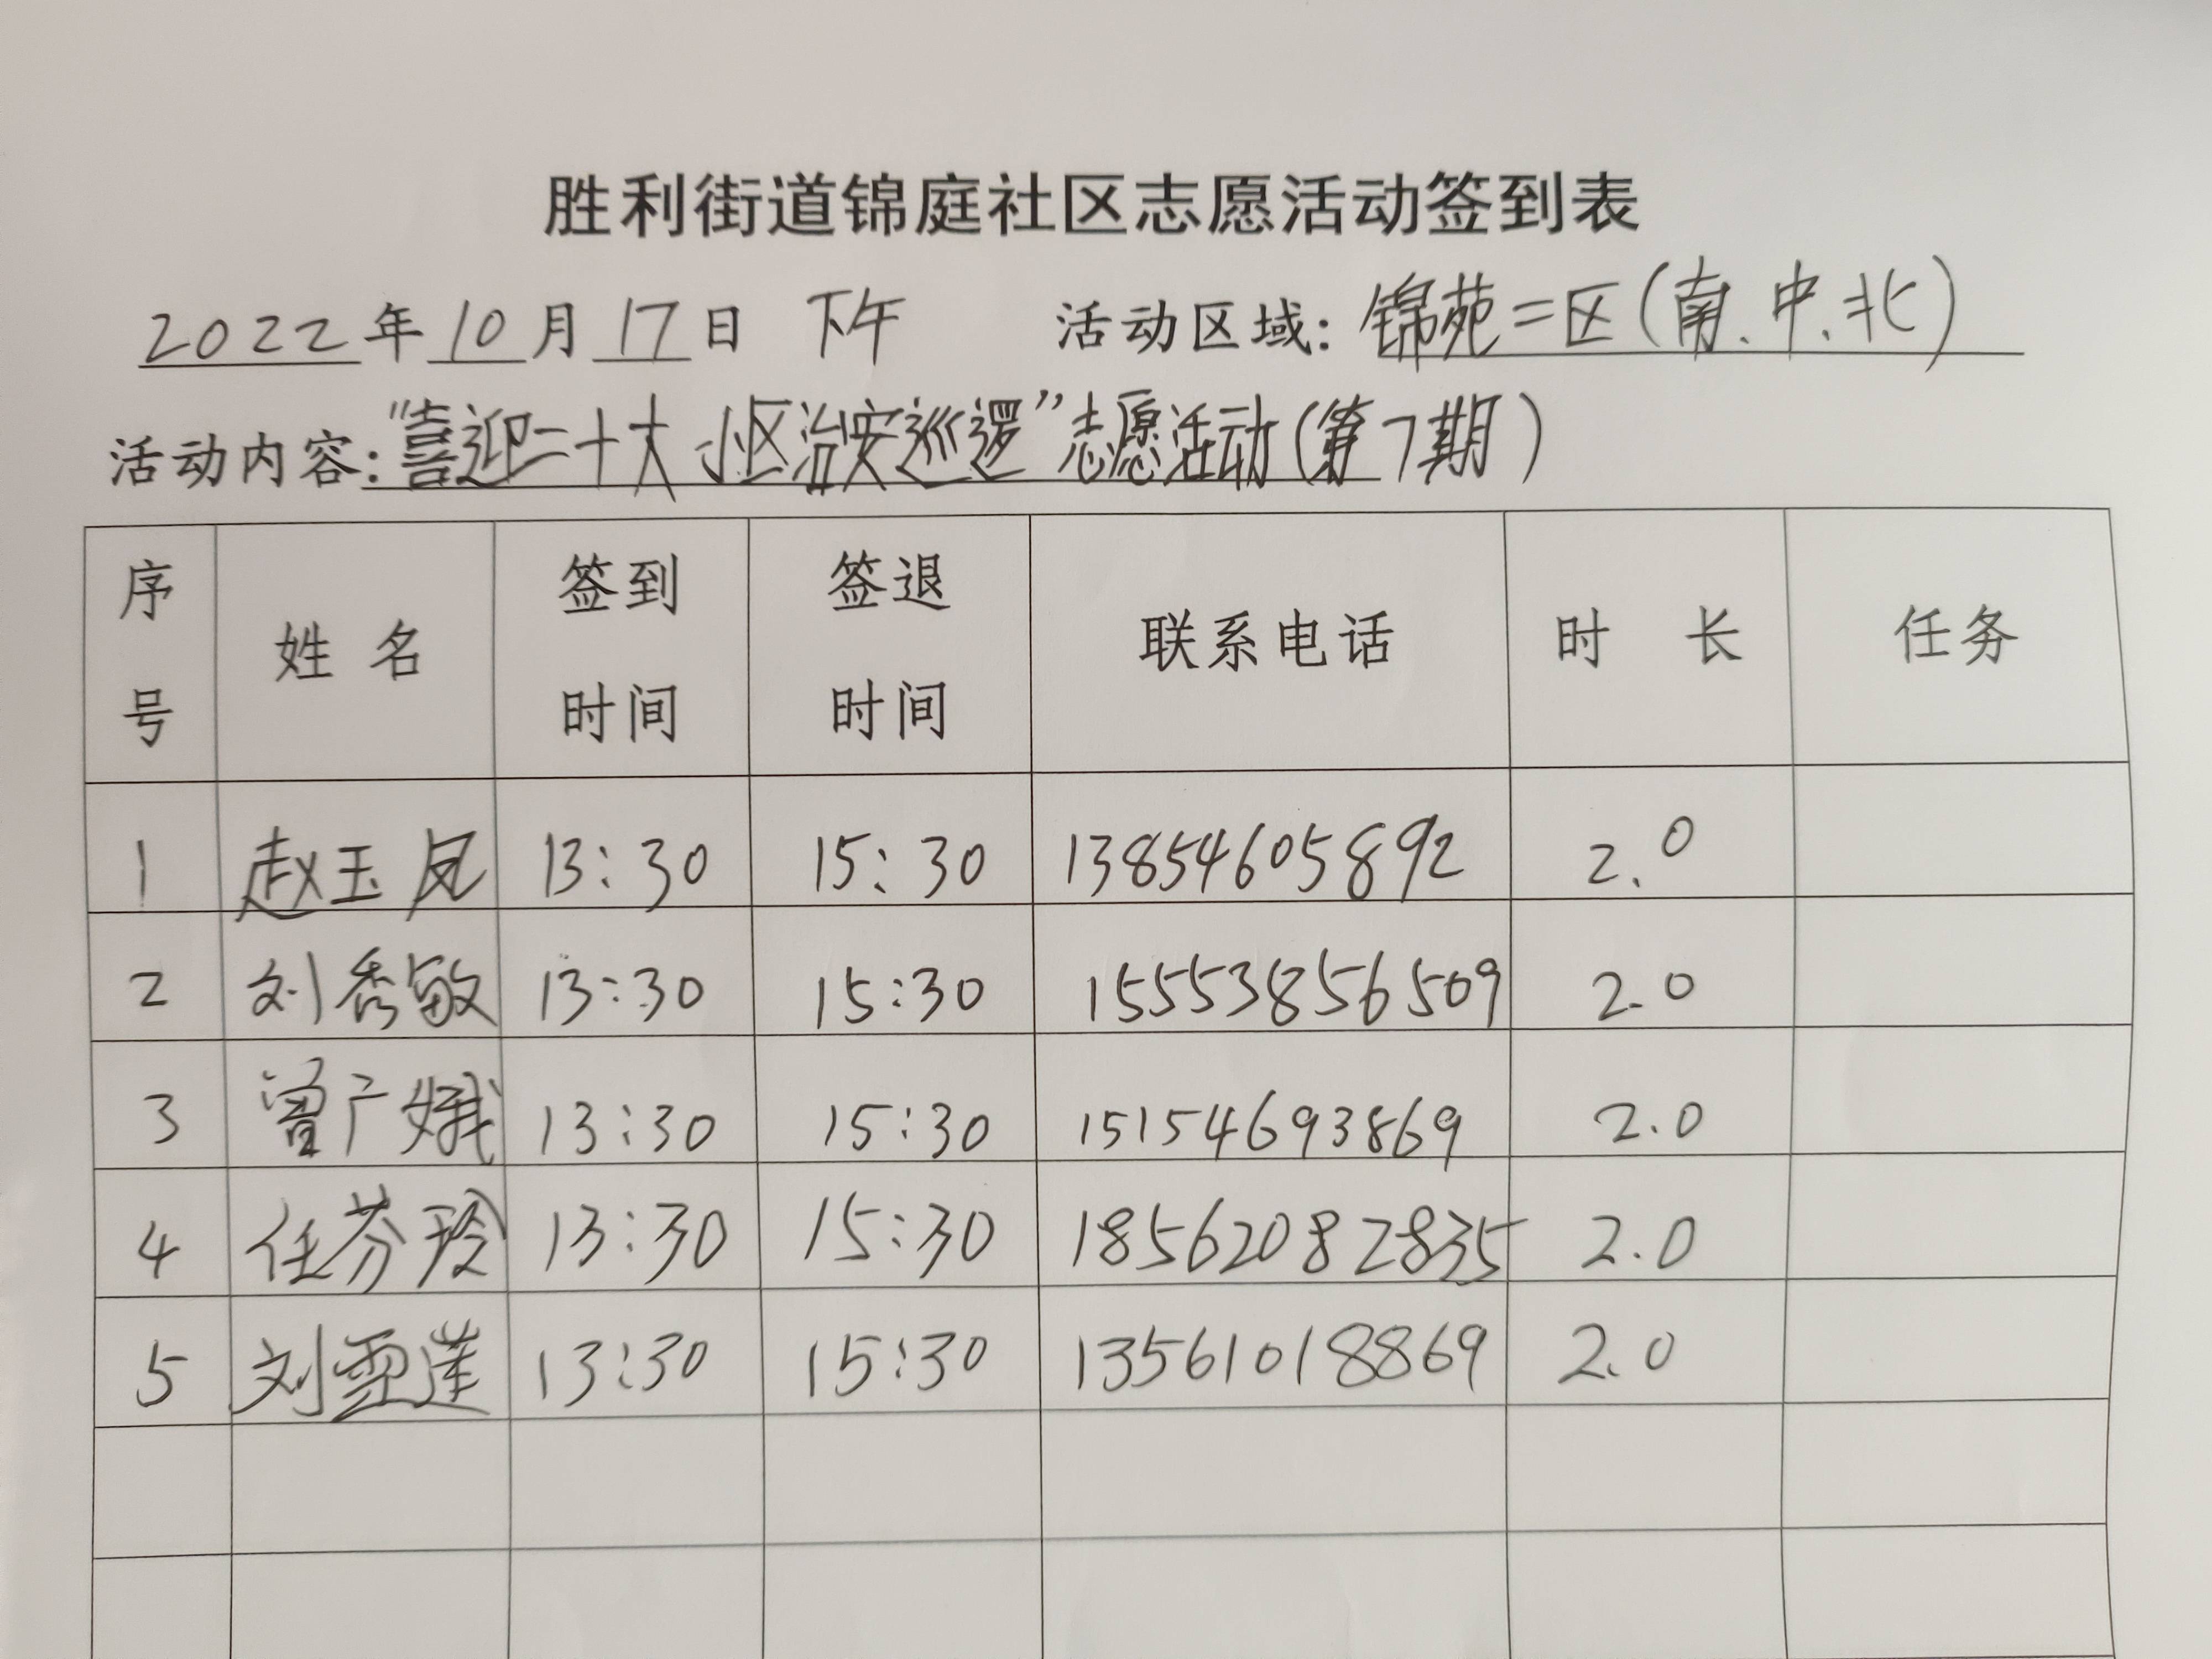 胜利街道锦庭社区志愿活动签到表
2022年10月17日 下午 活动区域：锦苑二区（南、中、北）
活动内容：“喜迎二十大 小区治安巡逻”志愿活动（第7期）
序号 姓名 签到时间 签退时间 联系电话 时长 任务
1 赵玉凤 13:30 15:30 13854605892 2.0
2 刘秀敏 13:30 15:30 15553856509 2.0
3 曾广娥 13:30 15:30 15154693869 2.0
4 任芬玲 13:30 15:30 18562082835 2.0
5 刘雪莲 13:30 15:30 13561018869 2.0